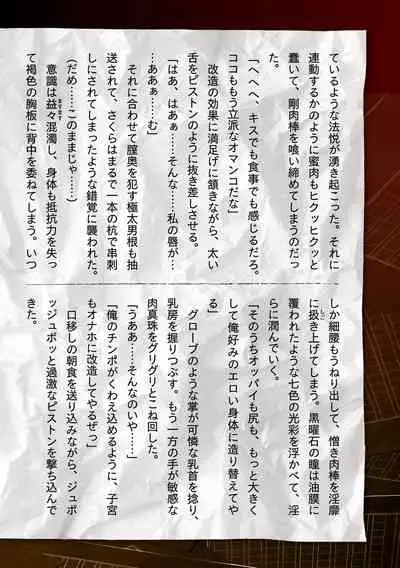 ているような法悦が湧き起こった。それに
連動するかのように蜜肉もヒクッヒクッと
蠢いて、剛肉棒を喰い締めてしまうのだっ
た。
「へへへ、キスでも食事でも感じるだろ。
ココももう立派なオマンコだな」
改造の効果に満足げに頷きながら、太い
舌をピストンのように抜き差しさせる。
「はあ、はあぁ……そんな……私の唇が…
…ああぁ……む」
それに合わせて膣奥を犯す極太男根も抽
送されて、さくらはまるで一本の杭で串刺
しにされてしまったような錯覚に襲われた。
(だめ……このままじゃ……)
意識は益々混濁し、身体も抵抗力を失っ
て褐色の胸板に背中を委ねてしまう。いつ
しか細腰もうねり出して、憎き肉棒を淫靡
に扱き上げてしまう。黒曜石の瞳は油膜に
覆われたような七色の光彩を浮かべて、淫
らに潤んでいく。
「そのうちオッパイも尻も、もっと大きく
して俺好みのエロい身体に造り替えてや
る」
グローブのような掌が可憐な乳首を捻り、
乳房を握りつぶす。もう一方の手が敏感な
肉真珠をグリグリとこね回した。
「うああ……そんなのいや……」
「俺のチンポがくわえ込めるように、子宮
もオナホに改造してやるぜっ」
口移しの朝食を送り込みながら、ジュポ
ッジュポッと過激なピストンを撃ち込んで
きた。